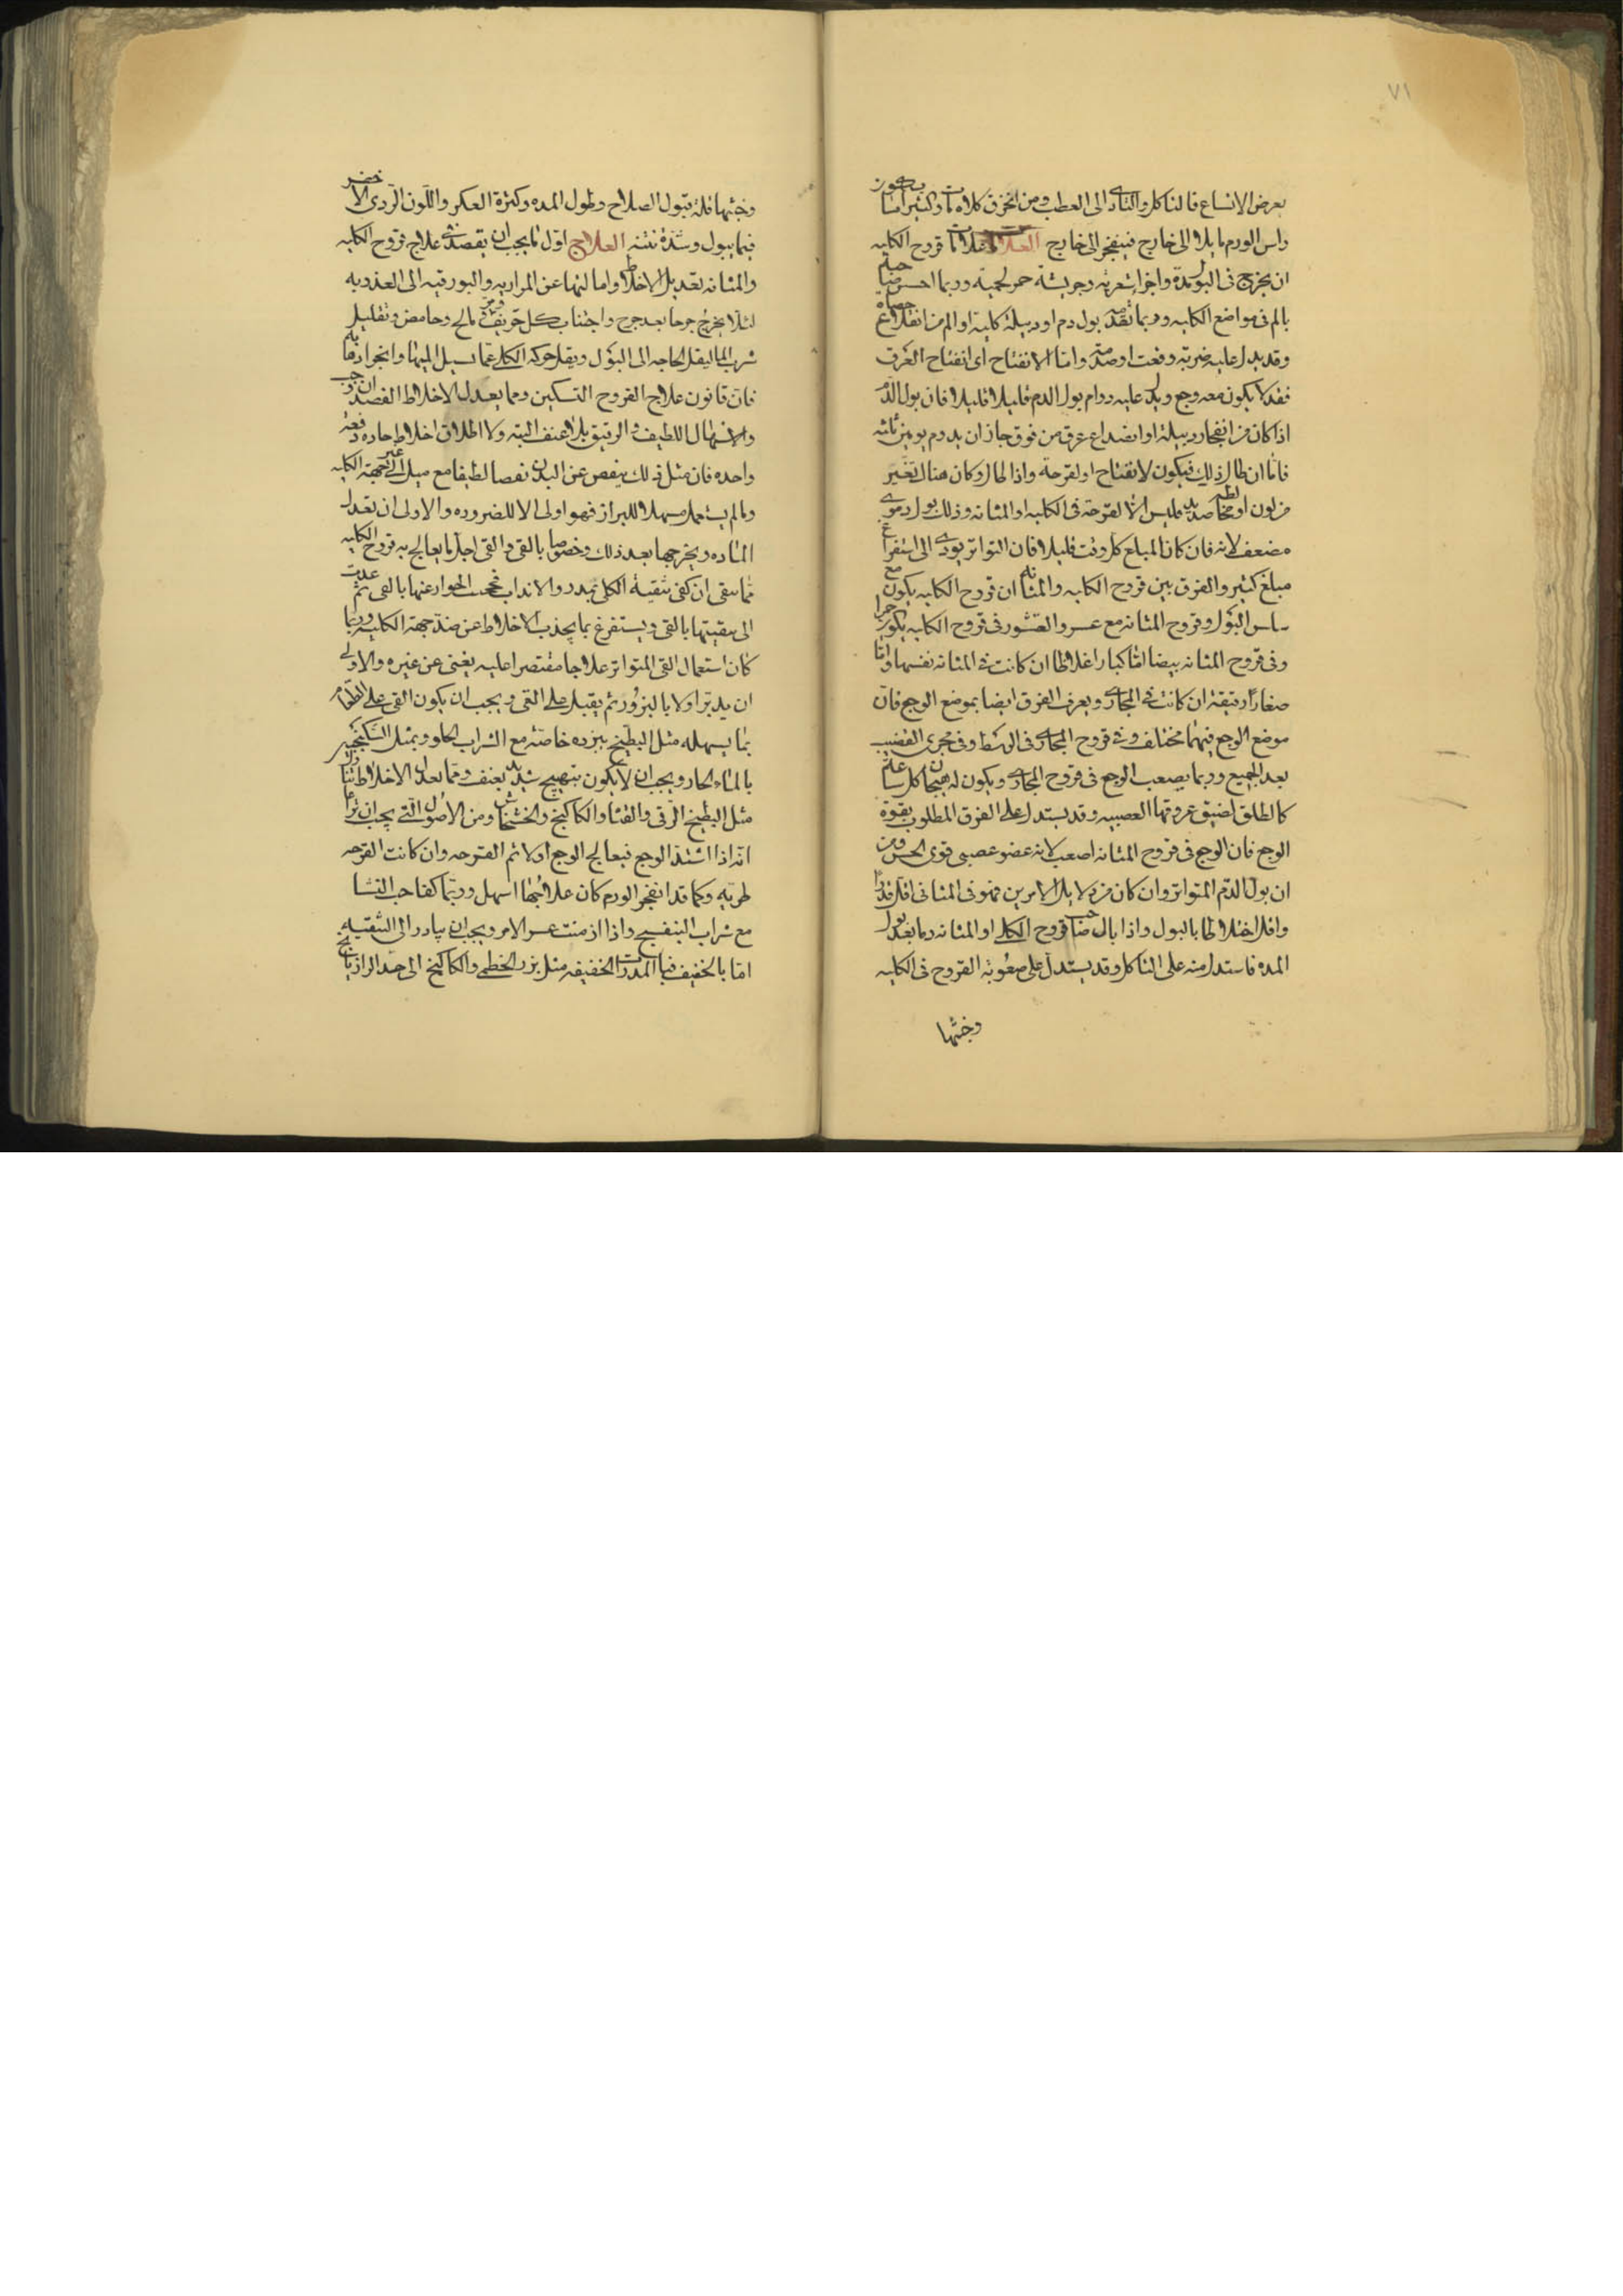 ٧١
يعرض الاتساع فالتاكل والتادى الى العطب ومن الخرق كلامات وكثيرا ما يكون
راس الورم مايلا الى خارج فينفجر الى خارج العلامات علامات قروح الكليه
ان يخرج فى البول مدة واجزا شعريه وجريشة حمر لحمية وربما احس صاحبها
بالم فى مواضع الكليه وربما تقدمه بول دم او دبيلة كلية او الم من انقلاع حصاة
وقد يدل عليه ضربة وقعت او صدمة واما الانفتاح اى انفتاح العرق
فقد لا يكون معه وجع ويدل عليه دوام بول الدم قليلا قليلا فان بول الدم
اذا كان من انفجار دبيلة او انصداع عرق من فوق جاز ان يدوم يومين ثلثه
فاما ان طال ذلك فيكون لانفتاح او لقرحة واذا طال وكان هناك تغير
من لون او مخالطه صديد فليس الا لقرحة فى الكليه او المثانه وذلك بول دموى
مضعف لانه فان كان المبلغ كل وقت قليلا فان التواتر يودى الى استفراغ
مبلغ كثير والفرق بين قروح الكليه والمثانه ان قروح الكليه يكون مع
سلس البول وقروح المثانه مع عسر والقشور فى قروح الكليه يكون حمرا
وفى قروح المثانه بيضا اما كبارا غلاظا ان كانت فى المثانه نفسها واما
صغارا رقيقة ان كانت فى المجارى ويعرف الفرق ايضا بموضع الوجع فان
موضع الوجع فيهما مختلف وفى قروح المجارى فى الوسط وفى مجرى القضيب
بعد الجميع وربما يصعب الوجع فى قروح المجارى ويكون له هيجان كل ساعة
كالطلق لضيق عروقها العصبيه وقد يستدل على الفرق المطلوب بقوة
الوجع فان الوجع فى قروح المثانه اصعب لانه عضو عصبى قوى الحس ومن
ان بول الدم المتواتر وان كان من دلايل الامرين فهو فى المثانى اقل قدرا
واقل اختلاطا بالبول واذا بال صاحب قروح الكلى او المثانه دما بعد بول
المده فاستدل منه على التاكل وقد يستدل على صعوبة القروح فى الكليه
وخبثها
وخبثها قلة قبول الصلاح وطول المده وكثرة العكر واللون الردى الاخضر
فيما يبول وشدة نتنه العلاج اول ما يجب ان يقصد فى علاج قروح الكليه
والمثانه تعديل الاخلاط وامالتها عن المراريه والبورقيه الى العذوبه
لئلا يخرج جرحا بعد جرح واجتناب كل حريف ومر ومالح وحامض وتقليل
شرب الما ليقل الحاجه الى البول ويقل حركه الكلى عما يسيل اليها وانجراد ما يليه
فان قانون علاج القروح التسكين ومما يعدل الاخلاط الفصد ان وجب
والاسهال اللطيف والرقيق بلا عنف البته ولا اطلاق اخلاط حاده دفعة
واحده فان مثل ذلك ينقص عن البدن نقصا لطيفا مع ميل الى غير جهة الكليه
وما لم يستعمل مسهلا للبراز فهو اولى الا للضروره والاولى ان تعدل
الماده ويخرجها بعد ذلك وخصوصا بالقى والقى اجل ما يعالج به قروح الكليه
فما ينقى ان كفى تنقية الكلى بمدر والا انداب تحجب الحوار عنها بالقى ثم عدت
الى تنقيتها بالقى ويستفرغ بما يجذب الاخلاط عن ضد جهة الكليه وربما
كان استعمال القى المتواتر علاجا مقتصرا عليه يغنى عن غيره والاولى
ان يدبر اولا بالبزور ثم يقبل على القى ويجب ان يكون القى على الطعام
بما يسهله مثل البطيخ ببزره خاصة مع الشراب الحلو وبمثل السكنجبين
بالماء الحار ويجب ان لا يكون بتهييج شديد يعنف ومما يعدل الاخلاط تناول
مثل البطيخ الرقى والقثا والكاكنج والخشخاش ومن الاصول التى يجب ان تراعا
انه اذا اشتد الوجع فيعالج الوجع اولا ثم القرحه وان كانت القرحه
طريه وكما قد انفجر الورم كان علاجها اسهل وربما كفا حب القثا
مع شراب البنفسج واذا ازمنت عسر الامر ويجب ان يبادر الى التنقيه
اما بالخفيف فبالمدرات الخفيفه مثل بزر الخطمى والكاكنج الى حد الرازيانج